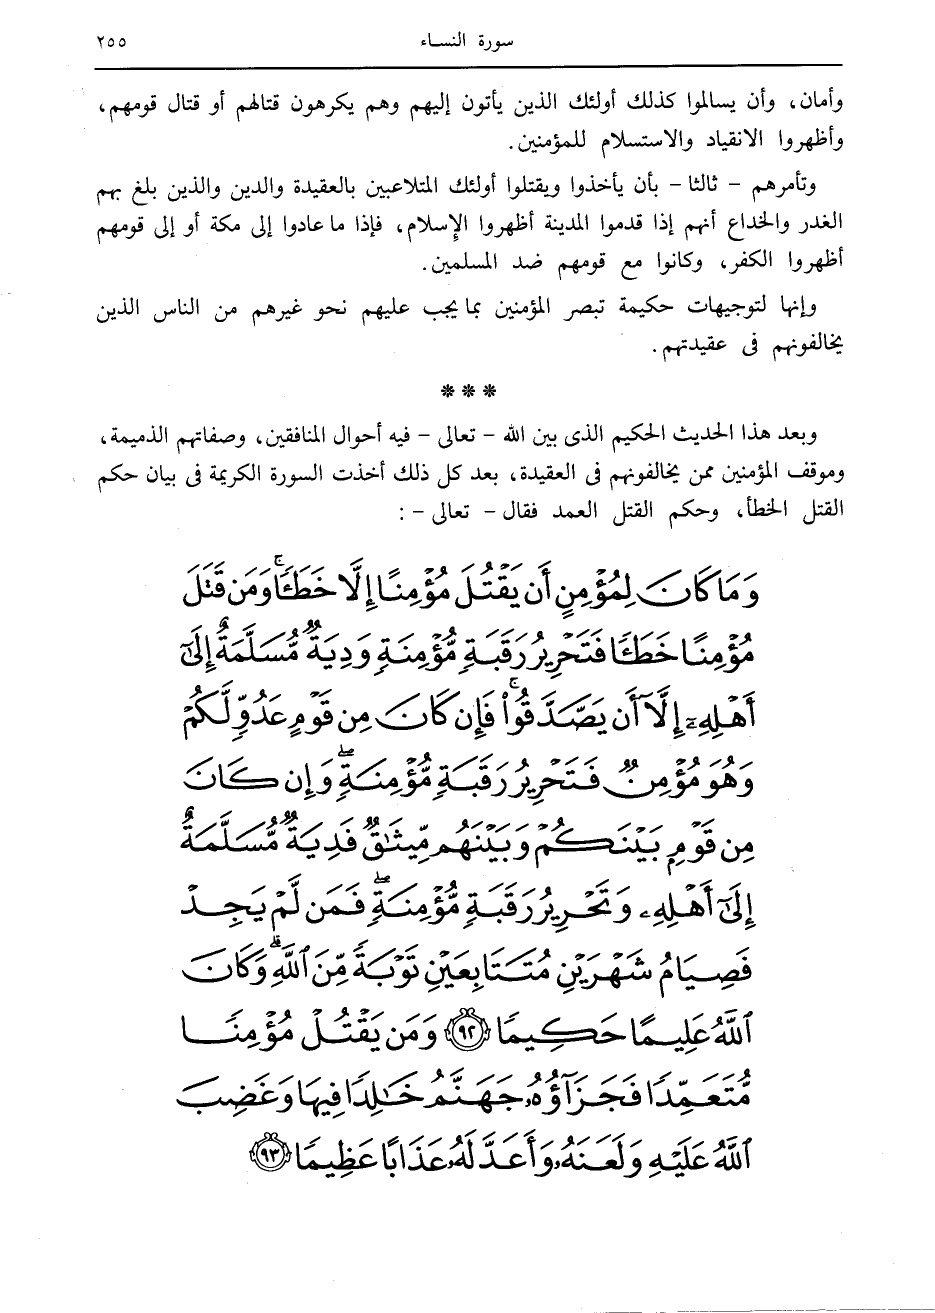 سورة النساء ٢٥٥
وأمان، وأن يسالموا كذلك أولئك الذين يأتون إليهم وهم يكرهون قتالهم أو قتال قومهم،
وأظهروا الانقياد والاستسلام للمؤمنين.
وتأمرهم - ثالثا - بأن يأخذوا ويقتلوا أولئك المتلاعبين بالعقيدة والدين والذين بلغ بهم
الغدر والخداع أنهم إذا قدموا المدينة أظهروا الإسلام، فإذا ما عادوا إلى مكة أو إلى قومهم
أظهروا الكفر، وكانوا مع قومهم ضد المسلمين.
وإنها لتوجيهات حكيمة تبصر المؤمنين بما يجب عليهم نحو غيرهم من الناس الذين
يخالفونهم فى عقيدتهم.
***
وبعد هذا الحديث الحكيم الذى بين الله - تعالى - فيه أحوال المنافقين، وصفاتهم الذميمة،
وموقف المؤمنين ممن يخالفونهم فى العقيدة، بعد كل ذلك أخذت السورة الكريمة فى بيان حكم
القتل الخطأ، وحكم القتل العمد فقال - تعالى - :
وَمَا كَانَ لِمُؤْمِنٍ أَن يَقْتُلَ مُؤْمِنًا إِلَّا خَطَـًٔا ۚ وَمَن قَتَلَ
مُؤْمِنًا خَطَـًٔا فَتَحْرِيرُ رَقَبَةٍ مُّؤْمِنَةٍ وَدِيَةٌ مُّسَلَّمَةٌ إِلَىٰٓ
أَهْلِهِۦٓ إِلَّآ أَن يَصَّدَّقُوا۟ ۚ فَإِن كَانَ مِن قَوْمٍ عَدُوٍّ لَّكُمْ
وَهُوَ مُؤْمِنٌ فَتَحْرِيرُ رَقَبَةٍ مُّؤْمِنَةٍ ۖ وَإِن كَانَ
مِن قَوْمٍۭ بَيْنَكُمْ وَبَيْنَهُم مِّيثَـٰقٌ فَدِيَةٌ مُّسَلَّمَةٌ
إِلَىٰٓ أَهْلِهِۦ وَتَحْرِيرُ رَقَبَةٍ مُّؤْمِنَةٍ ۖ فَمَن لَّمْ يَجِدْ
فَصِيَامُ شَهْرَيْنِ مُتَتَابِعَيْنِ تَوْبَةً مِّنَ ٱللَّهِ ۗ وَكَانَ
ٱللَّهُ عَلِيمًا حَكِيمًا ﴿٩٢﴾ وَمَن يَقْتُلْ مُؤْمِنًا
مُّتَعَمِّدًا فَجَزَآؤُهُۥ جَهَنَّمُ خَـٰلِدًا فِيهَا وَغَضِبَ
ٱللَّهُ عَلَيْهِ وَلَعَنَهُۥ وَأَعَدَّ لَهُۥ عَذَابًا عَظِيمًا ﴿٩٣﴾